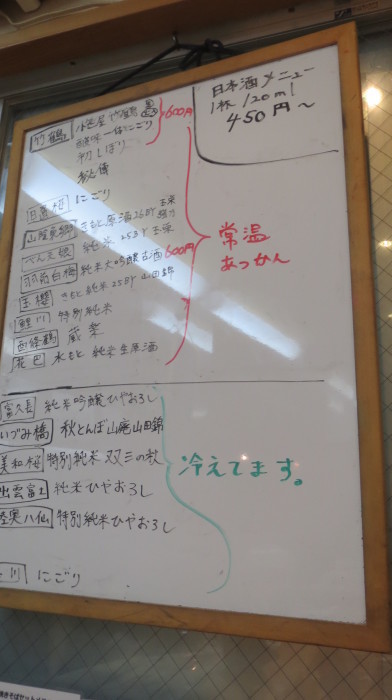 日本酒メニュー
1杯 120ml
450円～
竹鶴 小笹屋竹鶴 600円
にごり
初しぼり
秘傳
日置桜 にごり
山陰東郷 きもと原酒26BY 玉栄
純米 25BY 玉栄
羽前白梅 純米大吟醸古酒 600円
玉櫻 きもと純米25BY 山田錦
鯉川 特別純米
西條鶴 蔵
花巴 水もと 純米生原酒
常温
あつかん
富久長 純米吟醸ひやおろし
いづみ橋 秋とんぼ山廃山田錦
美和桜 特別純米 双三の秋
出雲富士 純米ひやおろし
陸奥八仙 特別純米ひやおろし
川 にごり
冷えてます。